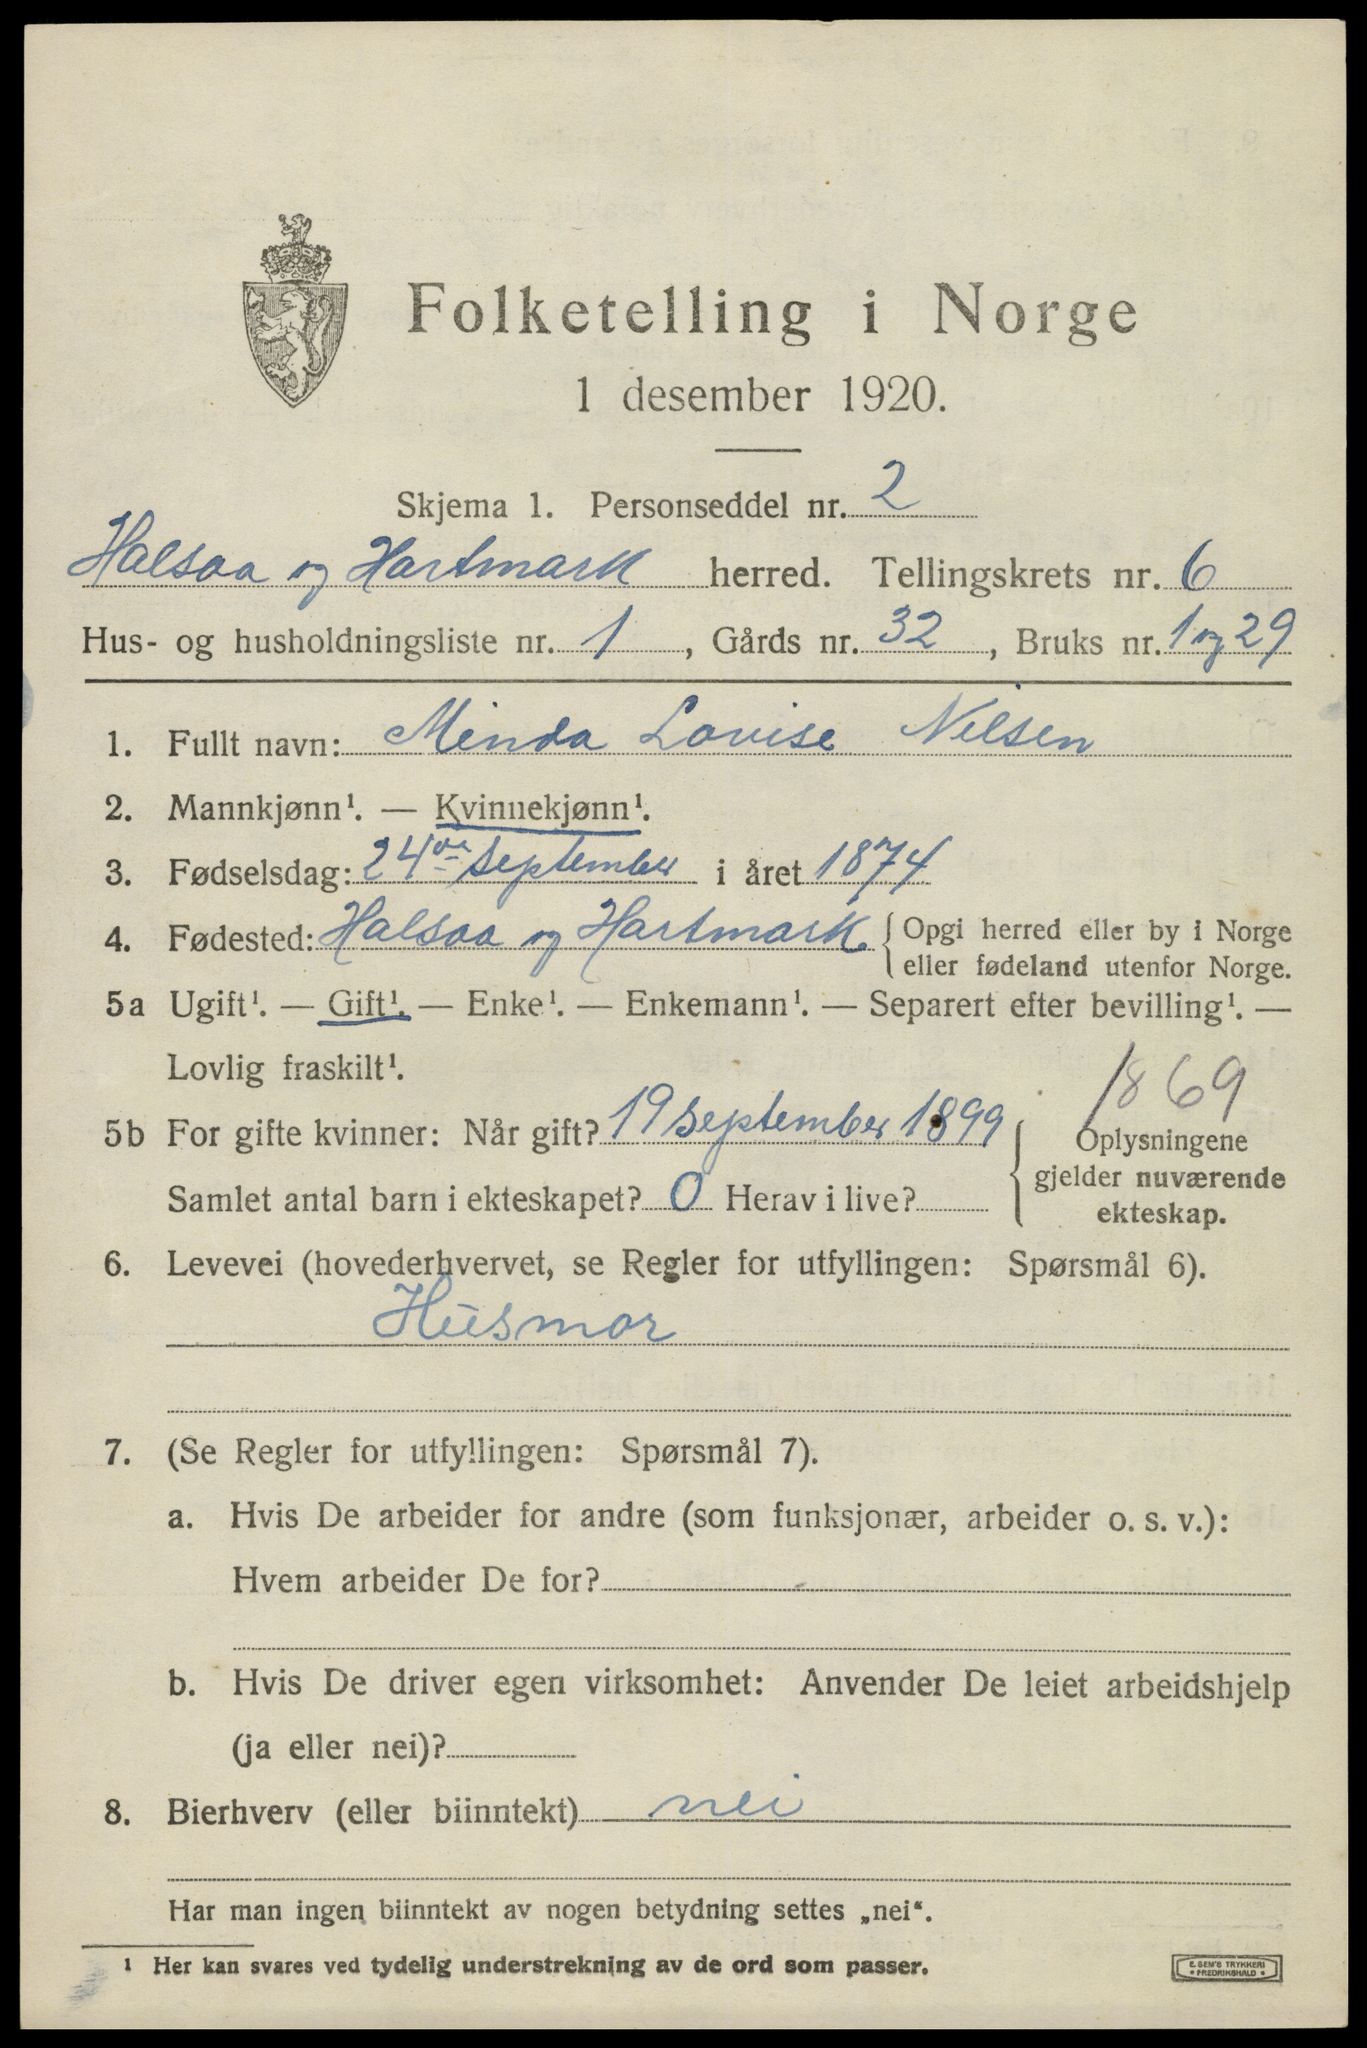 Folketelling i Norge
1 desember 1920.
Skjema 1. Personseddel nr. 2
Halsaa og Hartmark herred. Tellingskrets nr. 6
Hus- og husholdningsliste nr. 1, Gårds nr. 32, Bruks nr. 1 og 29
1. Fullt navn: Minda Lovise Nilsen
2. Mannkjønn¹. — Kvinnekjønn¹.
3. Fødselsdag: 24de september i året 1874
4. Fødested: Halsaa og Hartmark. { Opgi herred eller by i Norge
eller fødeland utenfor Norge.
5a Ugift¹. — Gift¹. — Enke¹. — Enkemann¹. — Separert efter bevilling¹. —
Lovlig fraskilt¹.
1869
5b For gifte kvinner: Når gift? 19 september 1899
Samlet antal barn i ekteskapet? 0 Herav i live?
{ Oplysningene
gjelder nuværende
ekteskap.
6. Levevei (hovederhvervet, se Regler for utfyllingen: Spørsmål 6).
Husmor
7. (Se Regler for utfyllingen: Spørsmål 7).
a. Hvis De arbeider for andre (som funksjonær, arbeider o. s. v.):
Hvem arbeider De for?
b. Hvis De driver egen virksomhet: Anvender De leiet arbeidshjelp
(ja eller nei)?
8. Bierhverv (eller biinntekt) nei
Har man ingen biinntekt av nogen betydning settes „nei“.
¹ Her kan svares ved tydelig understrekning av de ord som passer.
E. SEM'S TRYKKERI
• FREDRIKSHALD •